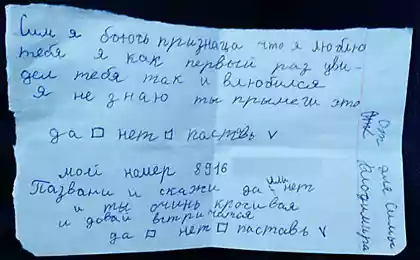 Сим я боюсь признаца что я люблю
тебя я как первый раз уви-
дел тебя так и влюбился
Я не знаю ты прымеш это
да □ нет □ паставь v
мой номер 8916
Пазвани и скажи да или нет
и ты очинь кросивая
и довай встричатся
да □ нет □ паставь v
От
для Симы
Влодимира